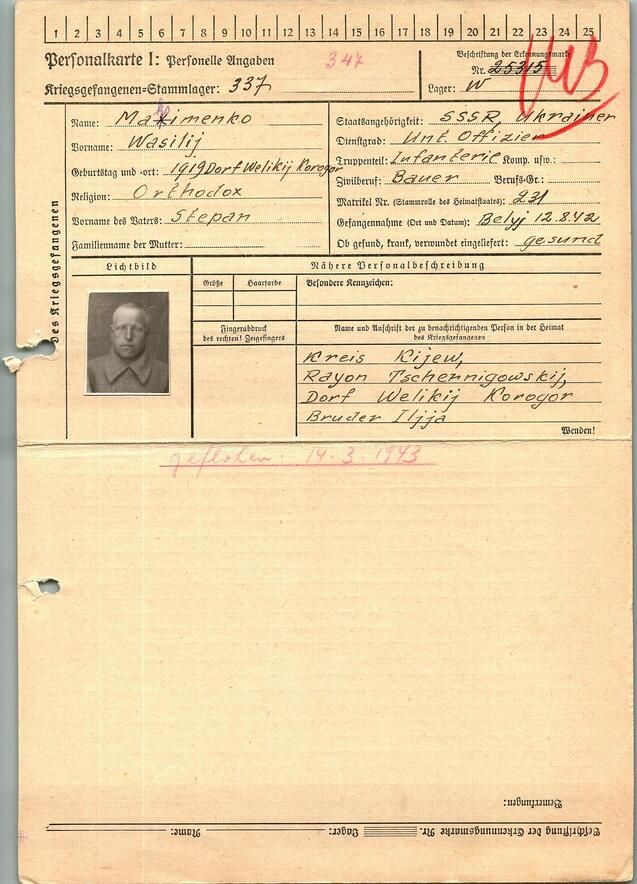 1 2 3 4 5 6 7 8 9 10 11 12 13 14 15 16 17 18 19 20 21 22 23 24 25
Personalkarte I: Personelle Angaben
347
Kriegsgefangenen-Stammlager: 337
Beschriftung der Erkennungsmarke
Nr. 25315
Lager: W
Des Kriegsgefangenen
Name: Maximenko
Vorname: Wasilij
Geburtstag und -ort: 1919 Dorf Welikij Korogor
Religion: Orthodox
Vorname des Vaters: Stepan
Familienname der Mutter:
Staatsangehörigkeit: SSSR, Ukrainer
Dienstgrad: Unt. Offizier
Truppenteil: Infanterie Komp. usw.:
Zivilberuf: Bauer Berufs-Gr.:
Matrikel Nr. (Stammrolle des Heimatstaates): 231
Gefangennahme (Ort und Datum): Belyj 12.8.42
Ob gesund, krank, verwundet eingeliefert: gesund
Lichtbild
Nähere Personalbeschreibung
Größe
Haarfarbe
Besondere Kennzeichen:
Fingerabdruck
des rechten! Zeigefingers
Name und Anschrift der zu benachrichtigenden Person in der Heimat
des Kriegsgefangenen
Kreis Kijew,
Rayon Tschernigowskij,
Dorf Welikij Korogor
Bruder Iljja
Wenden!
geflohen: 14.3.1943
Bemerkungen:
Beschriftung der Erkennungsmarke Nr. Lager: Name: